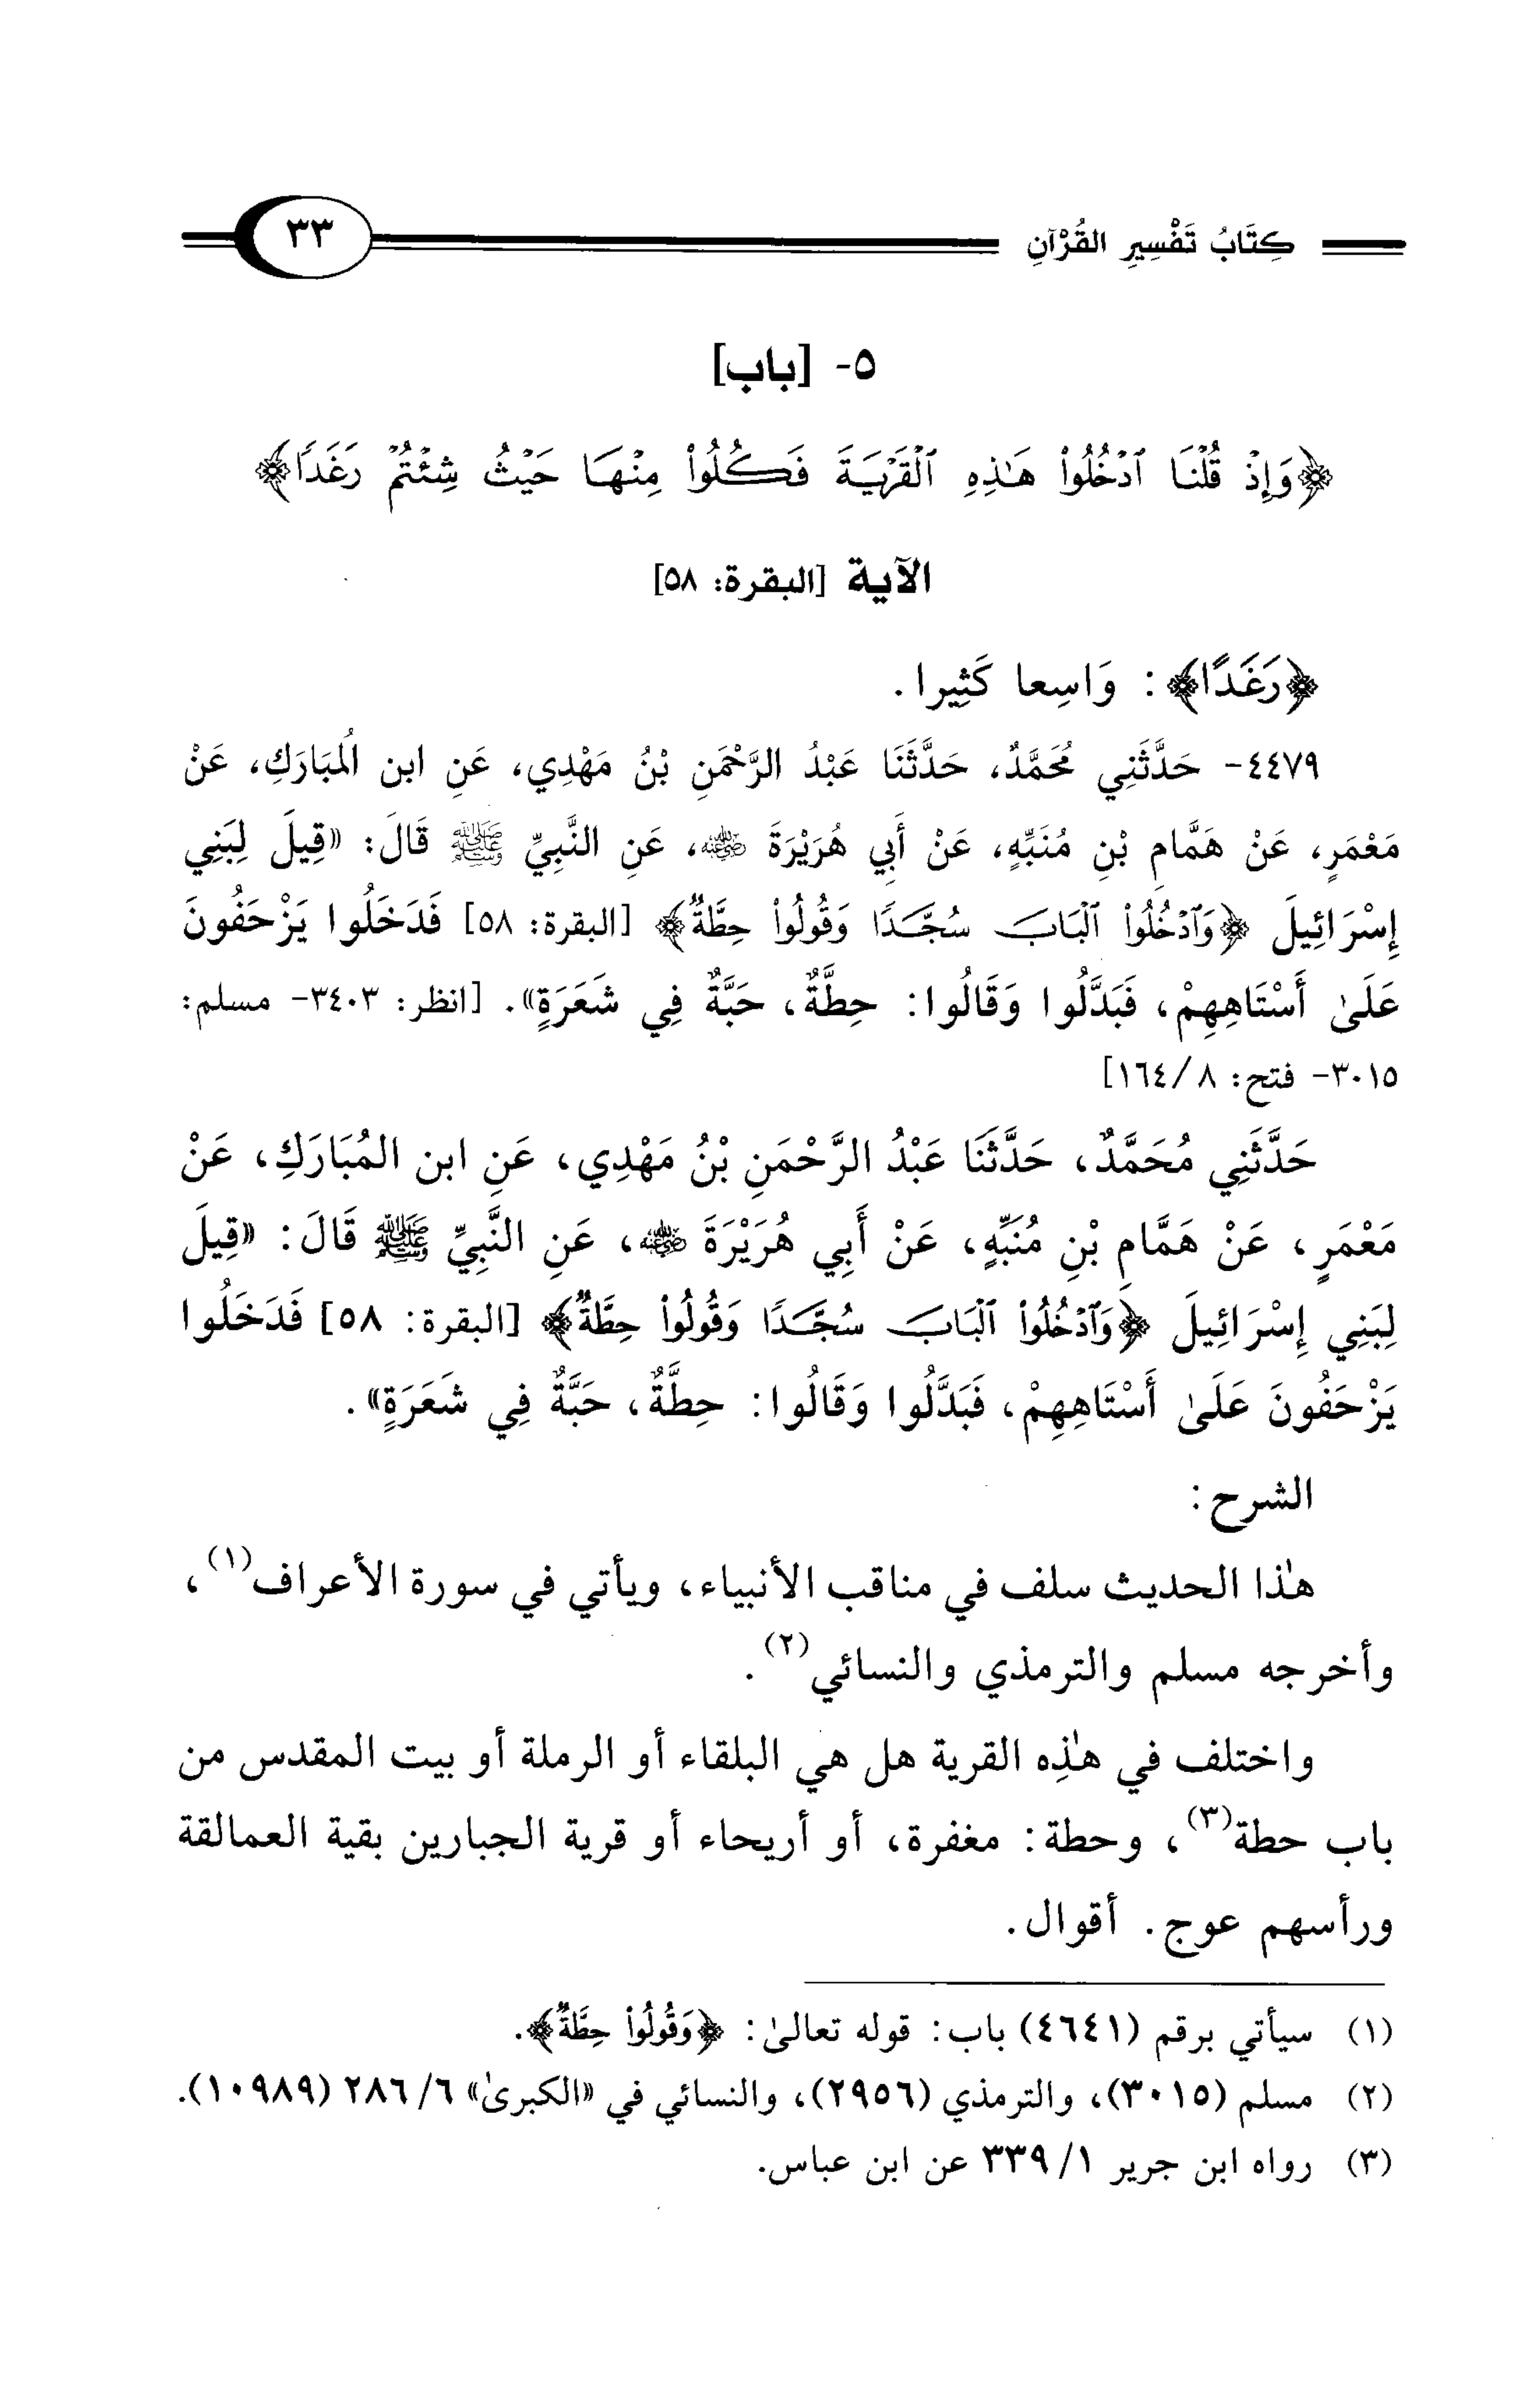 كِتَابُ تَفْسِيرِ القُرْآنِ ٣٣
٥- [باب]
﴿وَإِذْ قُلْنَا ٱدْخُلُوا۟ هَـٰذِهِ ٱلْقَرْيَةَ فَكُلُوا۟ مِنْهَا حَيْثُ شِئْتُمْ رَغَدًا﴾
الآية [البقرة: ٥٨]
﴿رَغَدًا﴾: وَاسِعا كَثِيرا.
٤٤٧٩- حَدَّثَنِي مُحَمَّدٌ، حَدَّثَنَا عَبْدُ الرَّحْمَنِ بْنُ مَهْدِي، عَنِ ابن الُمبَارَكِ، عَنْ
مَعْمَرٍ، عَنْ هَمَّامِ بْنِ مُنَبِّهٍ، عَنْ أَبِي هُرَيْرَةَ رضي الله عنه، عَنِ النَّبِيِّ ﷺ قَالَ: «قِيلَ لِبَنِي
إِسْرَائِيلَ ﴿وَٱدْخُلُوا۟ ٱلْبَابَ سُجَّدًا وَقُولُوا۟ حِطَّةٌ﴾ [البقرة: ٥٨] فَدَخَلُوا يَزْحَفُونَ
عَلَىٰ أَسْتَاهِهِمْ، فَبَدَّلُوا وَقَالُوا: حِطَّةٌ، حَبَّةٌ فِي شَعَرَةٍ». [انظر: ٣٤٠٣- مسلم:
٣٠١٥- فتح: ٨/ ١٦٤]
حَدَّثَنِي مُحَمَّدٌ، حَدَّثَنَا عَبْدُ الرَّحْمَنِ بْنُ مَهْدِي، عَنِ ابن المُبَارَكِ، عَنْ
مَعْمَرٍ، عَنْ هَمَّامِ بْنِ مُنَبِّهٍ، عَنْ أَبِي هُرَيْرَةَ رضي الله عنه، عَنِ النَّبِيِّ ﷺ قَالَ: «قِيلَ
لِبَنِي إِسْرَائِيلَ ﴿وَٱدْخُلُوا۟ ٱلْبَابَ سُجَّدًا وَقُولُوا۟ حِطَّةٌ﴾ [البقرة: ٥٨] فَدَخَلُوا
يَزْحَفُونَ عَلَىٰ أَسْتَاهِهِمْ، فَبَدَّلُوا وَقَالُوا: حِطَّةٌ، حَبَّةٌ فِي شَعَرَةٍ».
الشرح:
هٰذا الحديث سلف في مناقب الأنبياء، ويأتي في سورة الأعراف(١)،
وأخرجه مسلم والترمذي والنسائي(٢).
واختلف في هٰذِه القرية هل هي البلقاء أو الرملة أو بيت المقدس من
باب حطة(٣)، وحطة: مغفرة، أو أريحاء أو قرية الجبارين بقية العمالقة
ورأسهم عوج. أقوال.
(١) سيأتي برقم (٤٦٤١) باب: قوله تعالىٰ: ﴿وَقُولُوا۟ حِطَّةٌ﴾.
(٢) مسلم (٣٠١٥)، والترمذي (٢٩٥٦)، والنسائي في «الكبرىٰ» ٦/ ٢٨٦ (١٠٩٨٩).
(٣) رواه ابن جرير ١/ ٣٣٩ عن ابن عباس.